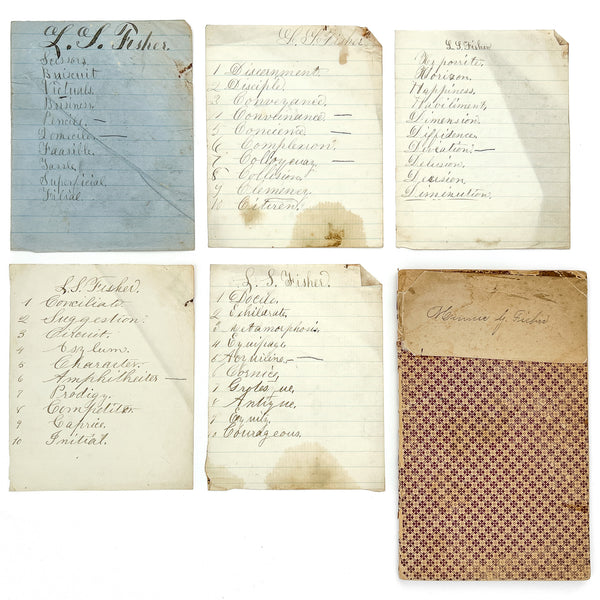 L. S. Fisher.
Scissors.
Buiscuit
Victuals.
Business.
Pencies. —
Domicile. —
Feasible.
Tassel
Superficial.
Filial.
L. S. Fisher.
1 Discernment.
2 Disciple.
3 Conveyance.
4 Convenance. —
5 Concience —
6 Complexion.
7 Colloquay —
8 Collision.
9 Clemency.
10 Citizen.
L S Fisher
Hypocrite.
Horizon.
Happiness.
Habiliment.
Dimension.
Diffidence.
Diviation. —
Delusion.
Decision
Diminution.
L. S. Fisher.
1 Conciliate.
2 Suggestion.
3 Circuit.
4 Asylum.
5 Character.
6 Amphitheiter —
7 Prodigy.
8 Competitor.
9 Caprice.
10 Initial.
L. S. Fisher.
1 Docile.
2 Exhilarate.
3 Metamorphosis.
4 Equipage.
5 Aquiline. —
6 Cornice.
7 Grotesque.
8 Antique.
9 Equity.
10 Courageous.
Minnie